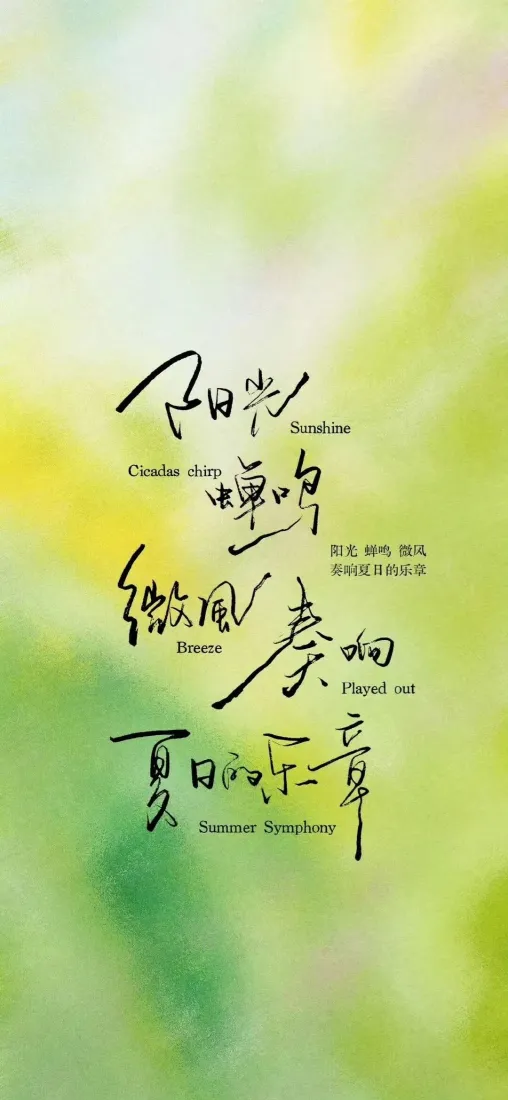 阳光
Sunshine
Cicadas chirp
蝉鸣
阳光 蝉鸣 微风
奏响夏日的乐章
微風
Breeze
奏响
Played out
夏日的乐章
Summer Symphony